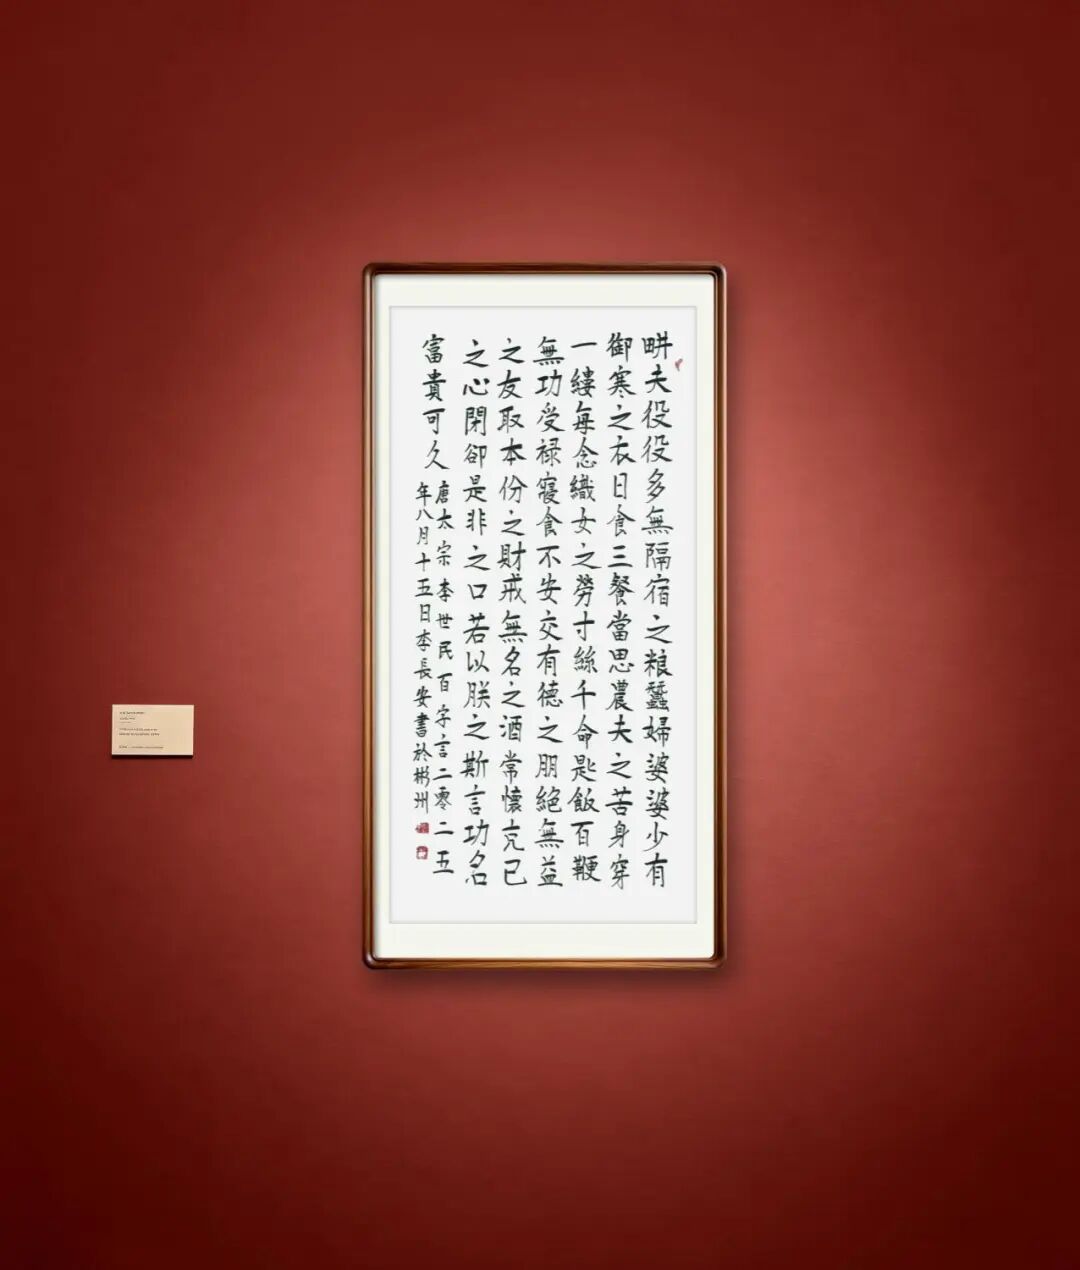 畊夫役役多無隔宿之粮蠶婦婆婆少有
御寒之衣日食三餐當思農夫之苦身穿
一縷每念織女之勞寸絲千命匙飯百鞭
無功受禄寝食不安交有德之朋絕無益
之友取本份之財戒無名之酒常懷克己
之心閉卻是非之口若以朕之斯言功名
富貴可久
唐太宗李世民百字言二零二五
年八月十五日李長安書於彬州